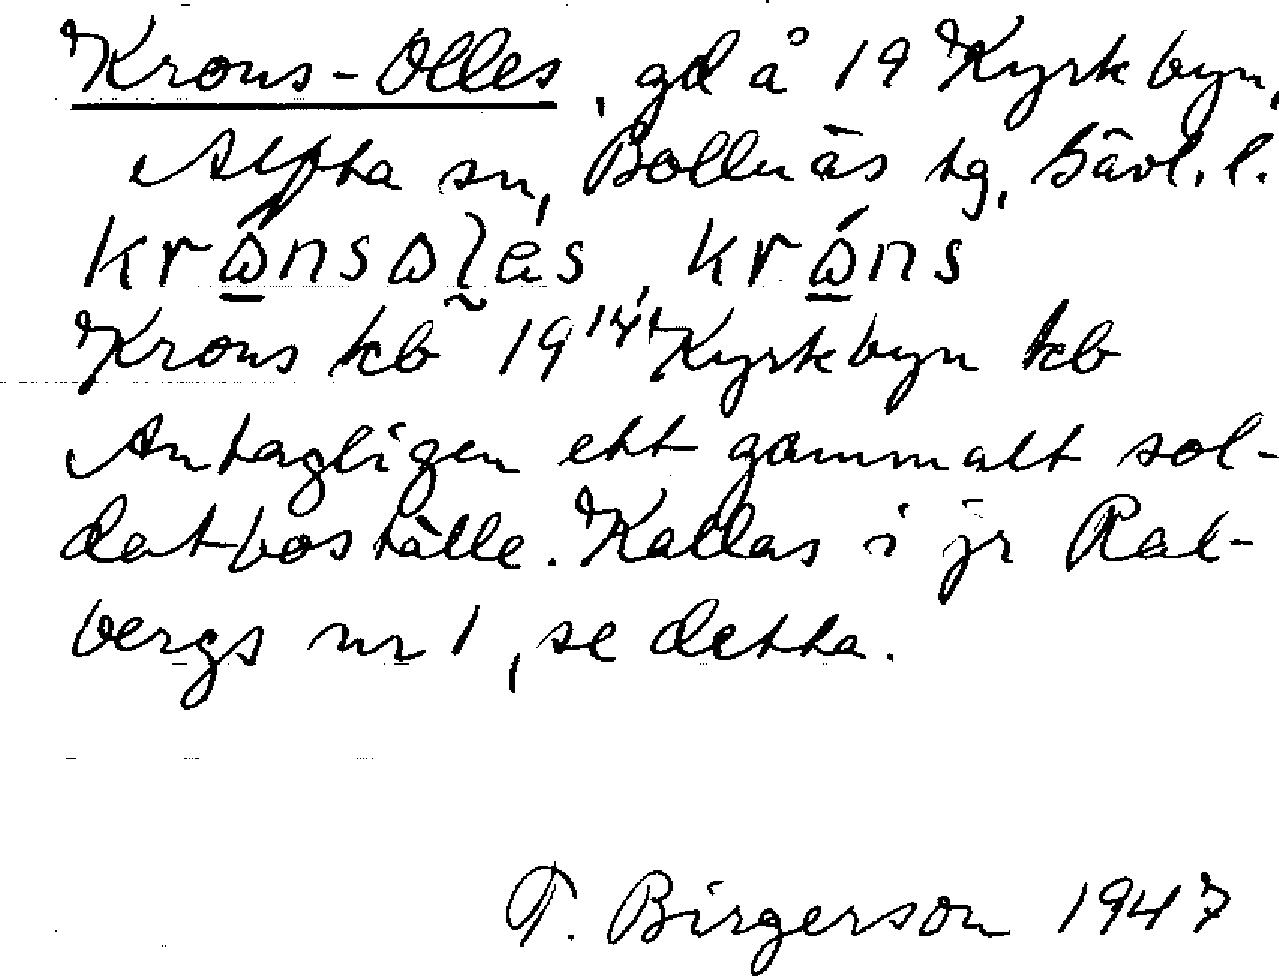 Krons-Olles, gd å 19 Kyrkbyn,
Alfta sn, Bollnäs tg, Gävl. l.
krɷ́nsɷlas, krɷ́ns
Krons kb 19 1⁄4 Kyrkbyn kb
Antagligen ett gammalt sol-
datboställe. Kallas i jr Rak-
bergs nr 1, se detta.
T. Birgerson 1947